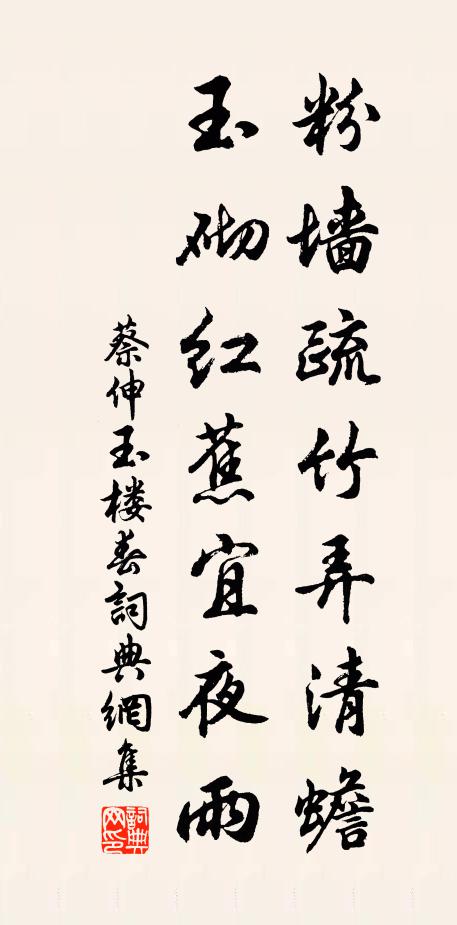 粉墙疏竹弄清蟾
玉砌红蕉宜夜雨
蔡伸玉楼春词典網集
詞典网印